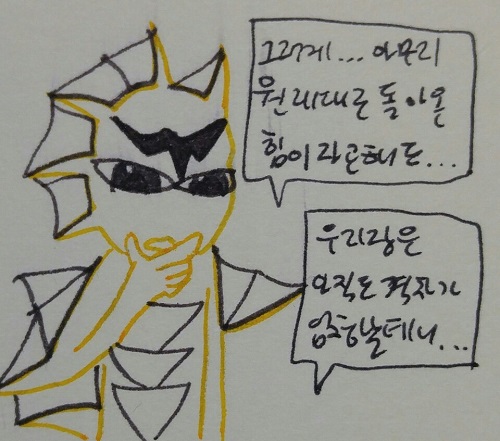 그러게... 아무리
원래대로 돌아온
힘이라곤해도...
우리랑은
아직도 격차가
엄청날테니...